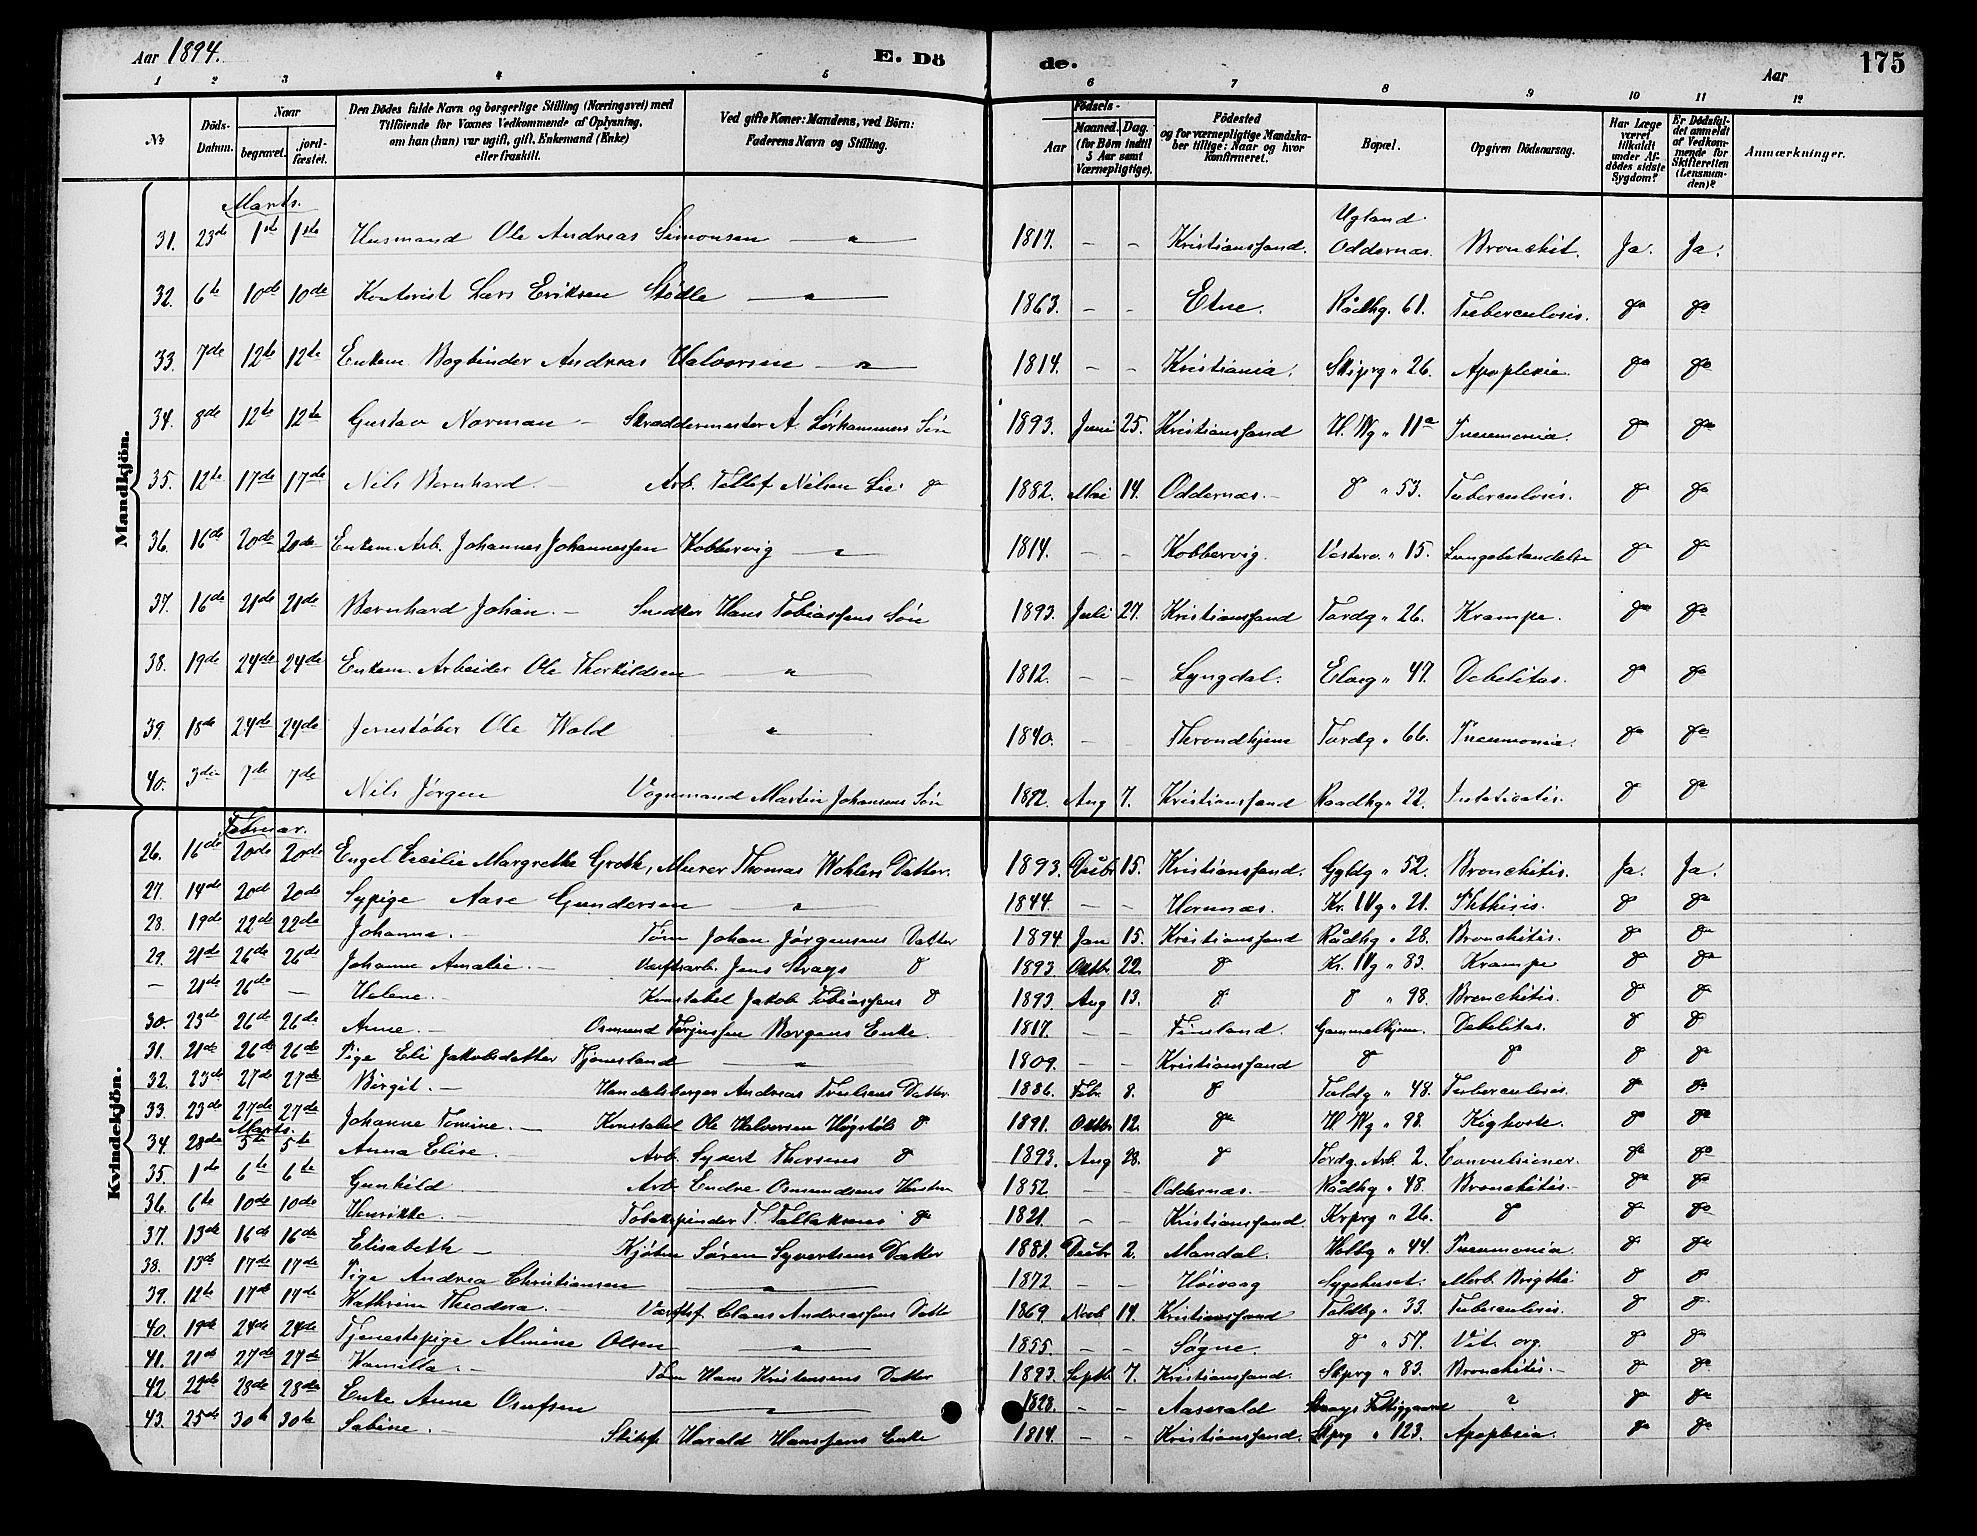 Aar 1894.
E. Dö
de.
Aar
175
1 2 3 4 5 6 7 8 9 10 11 12
No
Döds-Datum.
Naar
begravet.
jord-fæstet.
Den Dödes fulde Navn og borgerlige Stilling (Næringsvei) med
Tilföiende for Voxnes Vedkommende af Oplysning,
om han (hun) var ugift, gift, Enkemand (Enke)
eller fraskilt.
Ved gifte Koner: Mandens, ved Börn:
Faderens Navn og Stilling.
Födsels-
Aar
Maaned. Dag.
(for Börn indtil
5 Aar samt
Værnepligtige).
Födested
og for værnepligtige Mandska-
ber tillige: Naar og hvor
Konfirmeret.
Bopæl.
Opgiven Dödsaarsag.
Har Læge
været
tilkaldt
under Af-
dödes sidste
Sygdom?
Er Dödsfal-
det anmeldt
af Vedkom-
mende for
Skifteretten
(Lensman-
den)?
Anmærkninger.
Mandkjön.
Marts.
31. 23de 1ste 1ste Husmand Ole Andreas Simonsen — " — 1817. - - Kristianssand. Ugland Oddernæs. Bronchit. Ja. Ja.
32. 6te 10de 10de Kontorist Lars Eriksen Stødle — " — 1863. - - Etne. Rådhg. 61. Tuberculosis. do do
33. 7de 12te 12te Enkem. Bogbinder Andreas Halvorsen — " — 1814. - - Kristiania. Skiprg " 26. Apoplexia. do do
34. 8de 12te 12te Gustav Norman - Skræddermester A. Lørhammers Søn 1893. Juni 25. Kristianssand V. Wg " 11a Pneumonia. do do
35. 12te 17de 17de Nils Bernhard. - Arb. Tellef Nilsen Lie do 1882. Mai 14. Oddernæs. - do " 53. Tuberculosis. do do
36. 16de 20de 20de Enkem. Arb. Johannes Johannessen Kobbervig — " — 1814. - - Kobbervig. Vesterv. " 15. Lungebetændelse do do
37. 16de 21de 21de Bernhard Johan. - Snedker Hans Tobiassens Søn 1893. Juli 27. Kristianssand Tordg " 26. Krampe. do do
38. 19de 24de 24de Enkem. Arbeider Ole Therkildsen — " — 1812. - - Lyngdal. Elveg " 47. Debelitas. do do
39. 18de 24de 24de Jernstøber Ole Wold " 1840. - - Throndhjem Tordg " 66. Pneumonia. do do
40. 3die 7de 7de Nils Jørgen Vognmand Martin Johansens Søn 1892. Aug 7. Kristianssand Raadhg " 22. do do
Kvindekjön.
Februar.
26. 16de 20de 20de Engel Cecilie Margrethe Groth, Murer Thomas Wohlers Datter. 1893. Decbr 15. Kristianssand. Gyldg " 52. Bronchitis. Ja. Ja.
27. 14de 20de 20de Sypige Aase Gundersen — " — 1844. - - Hornnæs. Kr. IVg " 21. Phthisis. do do
28. 19de 22de 22de Johanna. - Tøm Johan Jørgensens Datter 1894. Jan 15. Kristianssand Rådhg " 28. Bronchitis. do do
29. 21de 26de 26de Johanne Amalie. - Værftsarb. Jens Krags do 1893. Oktbr 22. do Kr. IVg " 83. Krampe do do
— 21de 26de — Helene. - Konstabel Jakob Tobiassens do 1893. Aug 13. do do " 98. Bronchitis. do do
30. 23de 26de 26de Anne. - Osmund Terjussen Borgens Enke. 1817. - - Finsland. Gammelhjem. Debelitas. do do
31. 21de 26de 26de Pige Eli Jakobsdatter Tjomsland " 1809. - - Kristianssand do do do do
32. 23de 27de 27de Birgit. - Handelsborger Andreas Trulsens Datter. 1886. Febr. 8. do Toldg " 48. Tuberculosis. do do
33. 23de 27de 27de Johanne Tomine. - Konstabel Ole Halvorsen Høgstøls do 1891. Oktbr 12. do V. Wg " 98. Kighoste. do do
Marts.
34. 28de 5te 5te Anna Elise. - Arb. Syvert Thorsens do 1893. Aug 28. do Tordg. Arb. 2. Convulsioner. do do
35. 1ste 6te 6te Gunhild Arb. Endre Osmundsens Hustru 1852 - - Oddernæs. - Rådhg " 48. Bronchitis. do do
36. 6te 10de 10de Henrikke. - Tobakspinder T. Tellaksens do 1821. - - Kristianssand. Krprg " 26. do do do
37. 13de 16de 16de Elisabeth - Kjøbm Søren Syvertsens Datter 1881. Decbr 2. Mandal. Holbg " 44. Pneumonia. do do
38. 13de 17de 17de Pige Andrea Christiansen — " — 1872 - - Høivaag Sygehuset. Morb. Brigthi do do
39. 12te 17de 17de Kathrine Theodora. - Værftsf. Claus Andreassens Datter 1869 Novb 14. Kristianssand Toldbg " 33. Tuberculosis. do do
40. 19de 24de 24de Tjenestepige Almine Olsen " 1855. - - Søgne. do " 57. Vit. org. do do
41. 21de 27de 27de Kamilla. - Tøm Hans Kristensens Datter 1893. Septb 7. Kristianssand. Skprg " 83. Bronchitis. - do do
42. 22de 28de 28de Enke Anne Osufsen — " — 1828. - - Aaserald Fattiggaard ? do do
43. 25de 30te 30te Sabine. - Skibsf. Harald Hanssens Enke 1814. - - Kristianssand. Skprg " 123. Apoplexia. do do